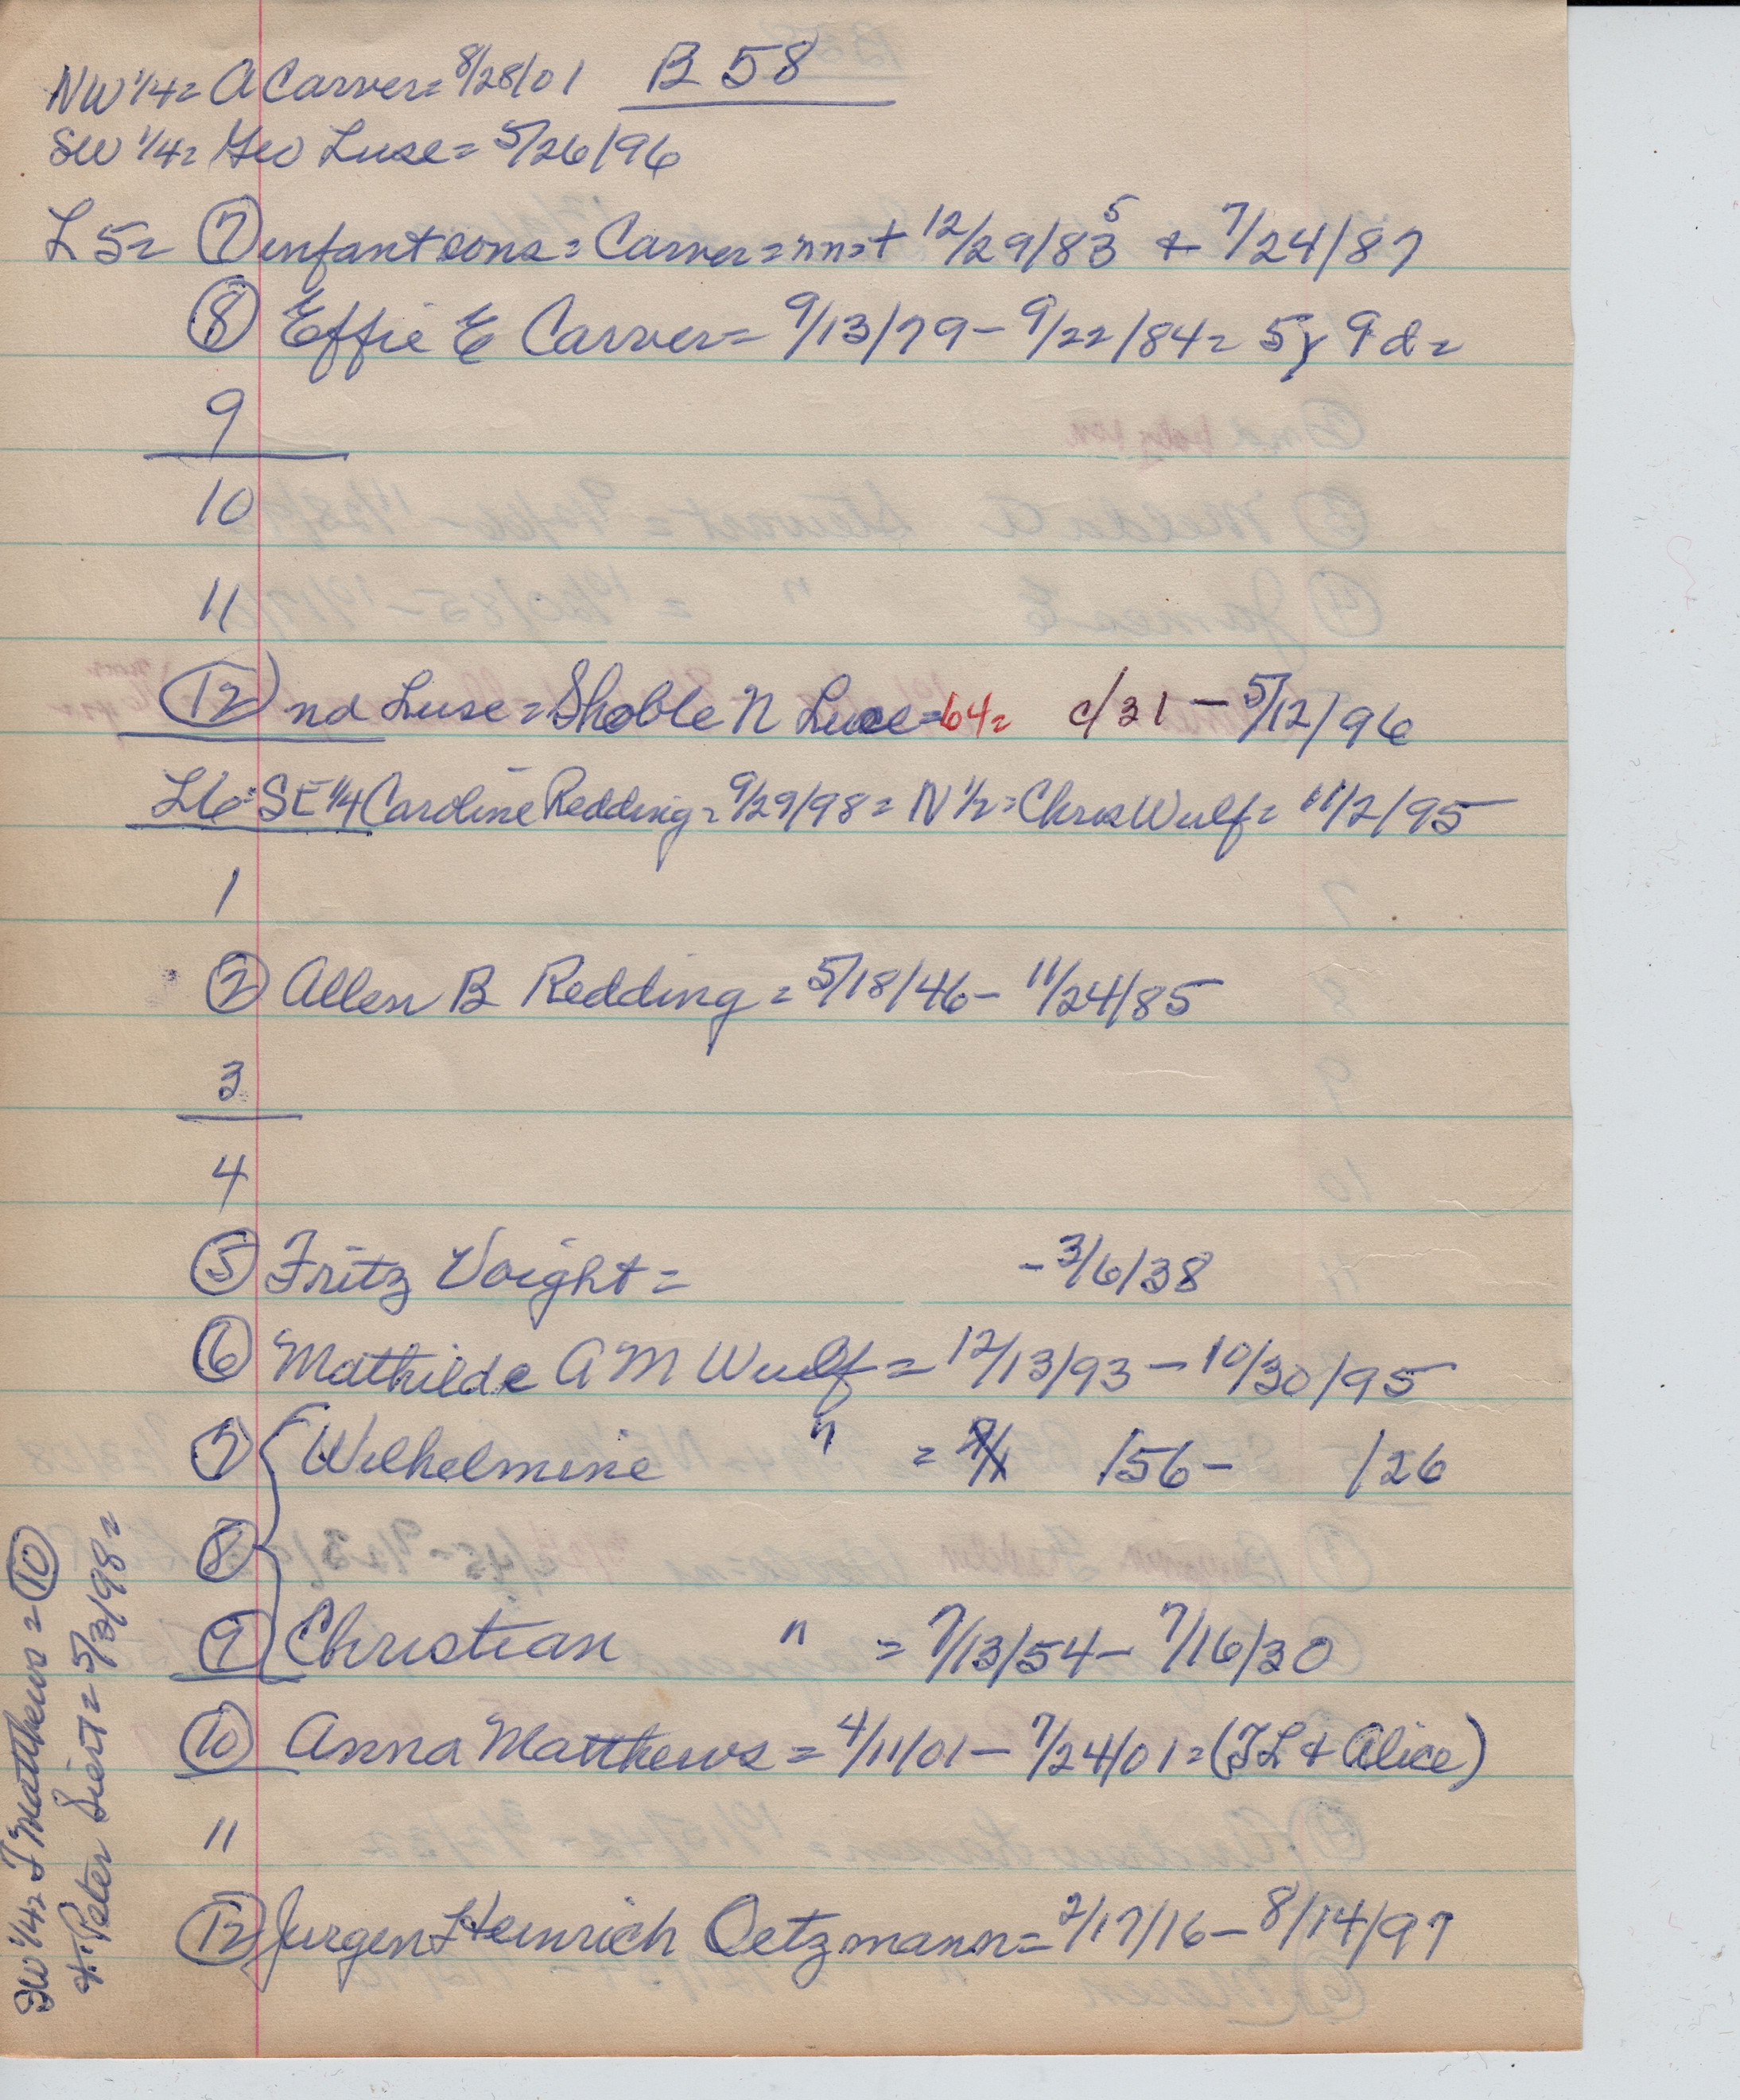 NW 1/4 = A Carver = 8/28/01 B 58
SW 1/4 = Geo Luse = 5/26/96
L 5 = 7 infant sons = Carver = nn = + 12/29/83 5 + 7/24/87
8 Effie E Carver = 9/13/79 - 9/22/84 = 5y 9d =
9
10
11
12 nd Luse = Shoble N Luse = 64 = c/31 - 5/12/96
L6 = SE 1/4 Caroline Redding = 9/29/98 = N 1/2 = Chris Wulf = 11/2/95
1
2 Allen B Redding = 5/18/46 - 11/24/85
3
4
5 Fritz Voight = - 3/6/38
6 Mathilde A M Wulf = 12/13/93 - 10/30/95
7 Wilhelmine " = /56 - /26
8
9 Christian " = 7/13/54 - 7/16/30
10 Anna Matthews = 4/11/01 - 7/24/01 = (TL + Alice)
11
12 Jurgen Heinrich Oetzmann = 2/17/16 - 8/14/97
SW 1/4 = T Matthews = 10
+ Peter Siert = 5/3/98 =